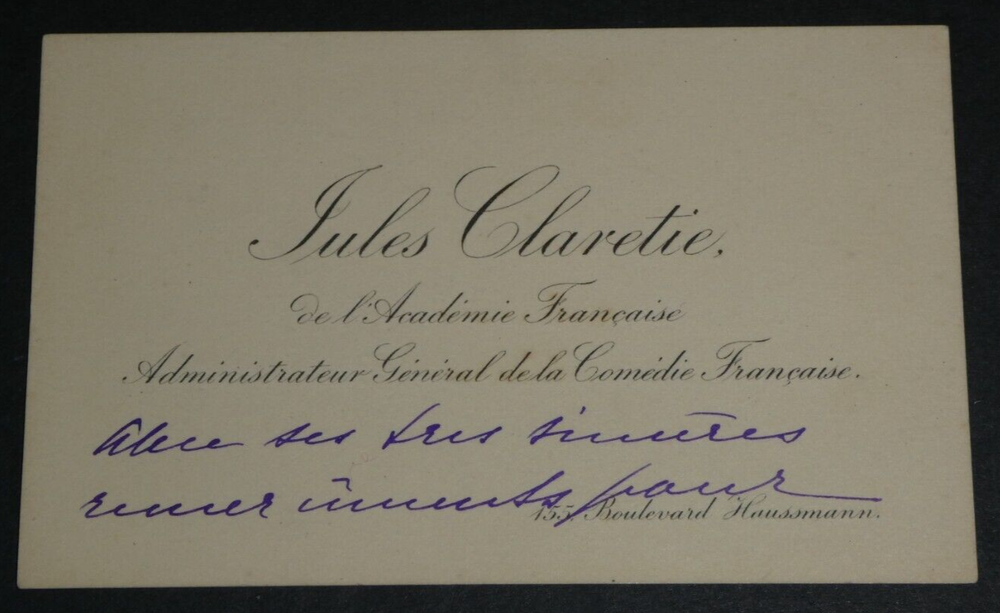 Jules Claretie,
de l'Académie Française
Administrateur Général de la Comédie Française.
avec ses très sincères
remerciements pour
155, Boulevard Haussmann.